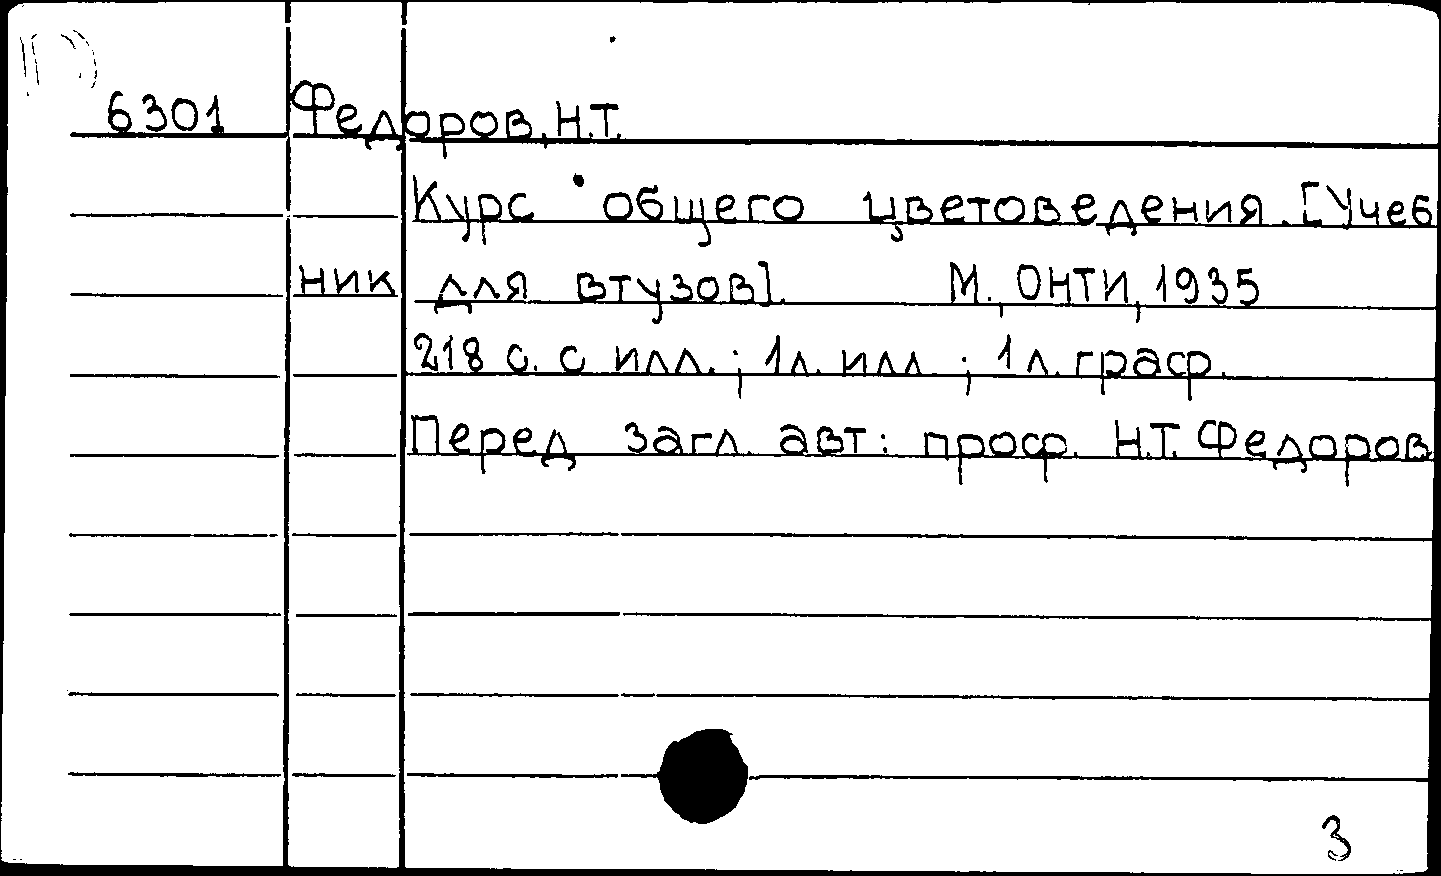 6301 Федоров, Н.Т.
Курс общего цветоведения. [Учеб
ник для втузов]. М., ОНТИ, 1935
218 с. с илл.; 1 л. илл.; 1 л. граф.
Перед загл. авт.: проф. Н.Т. Федоров
3